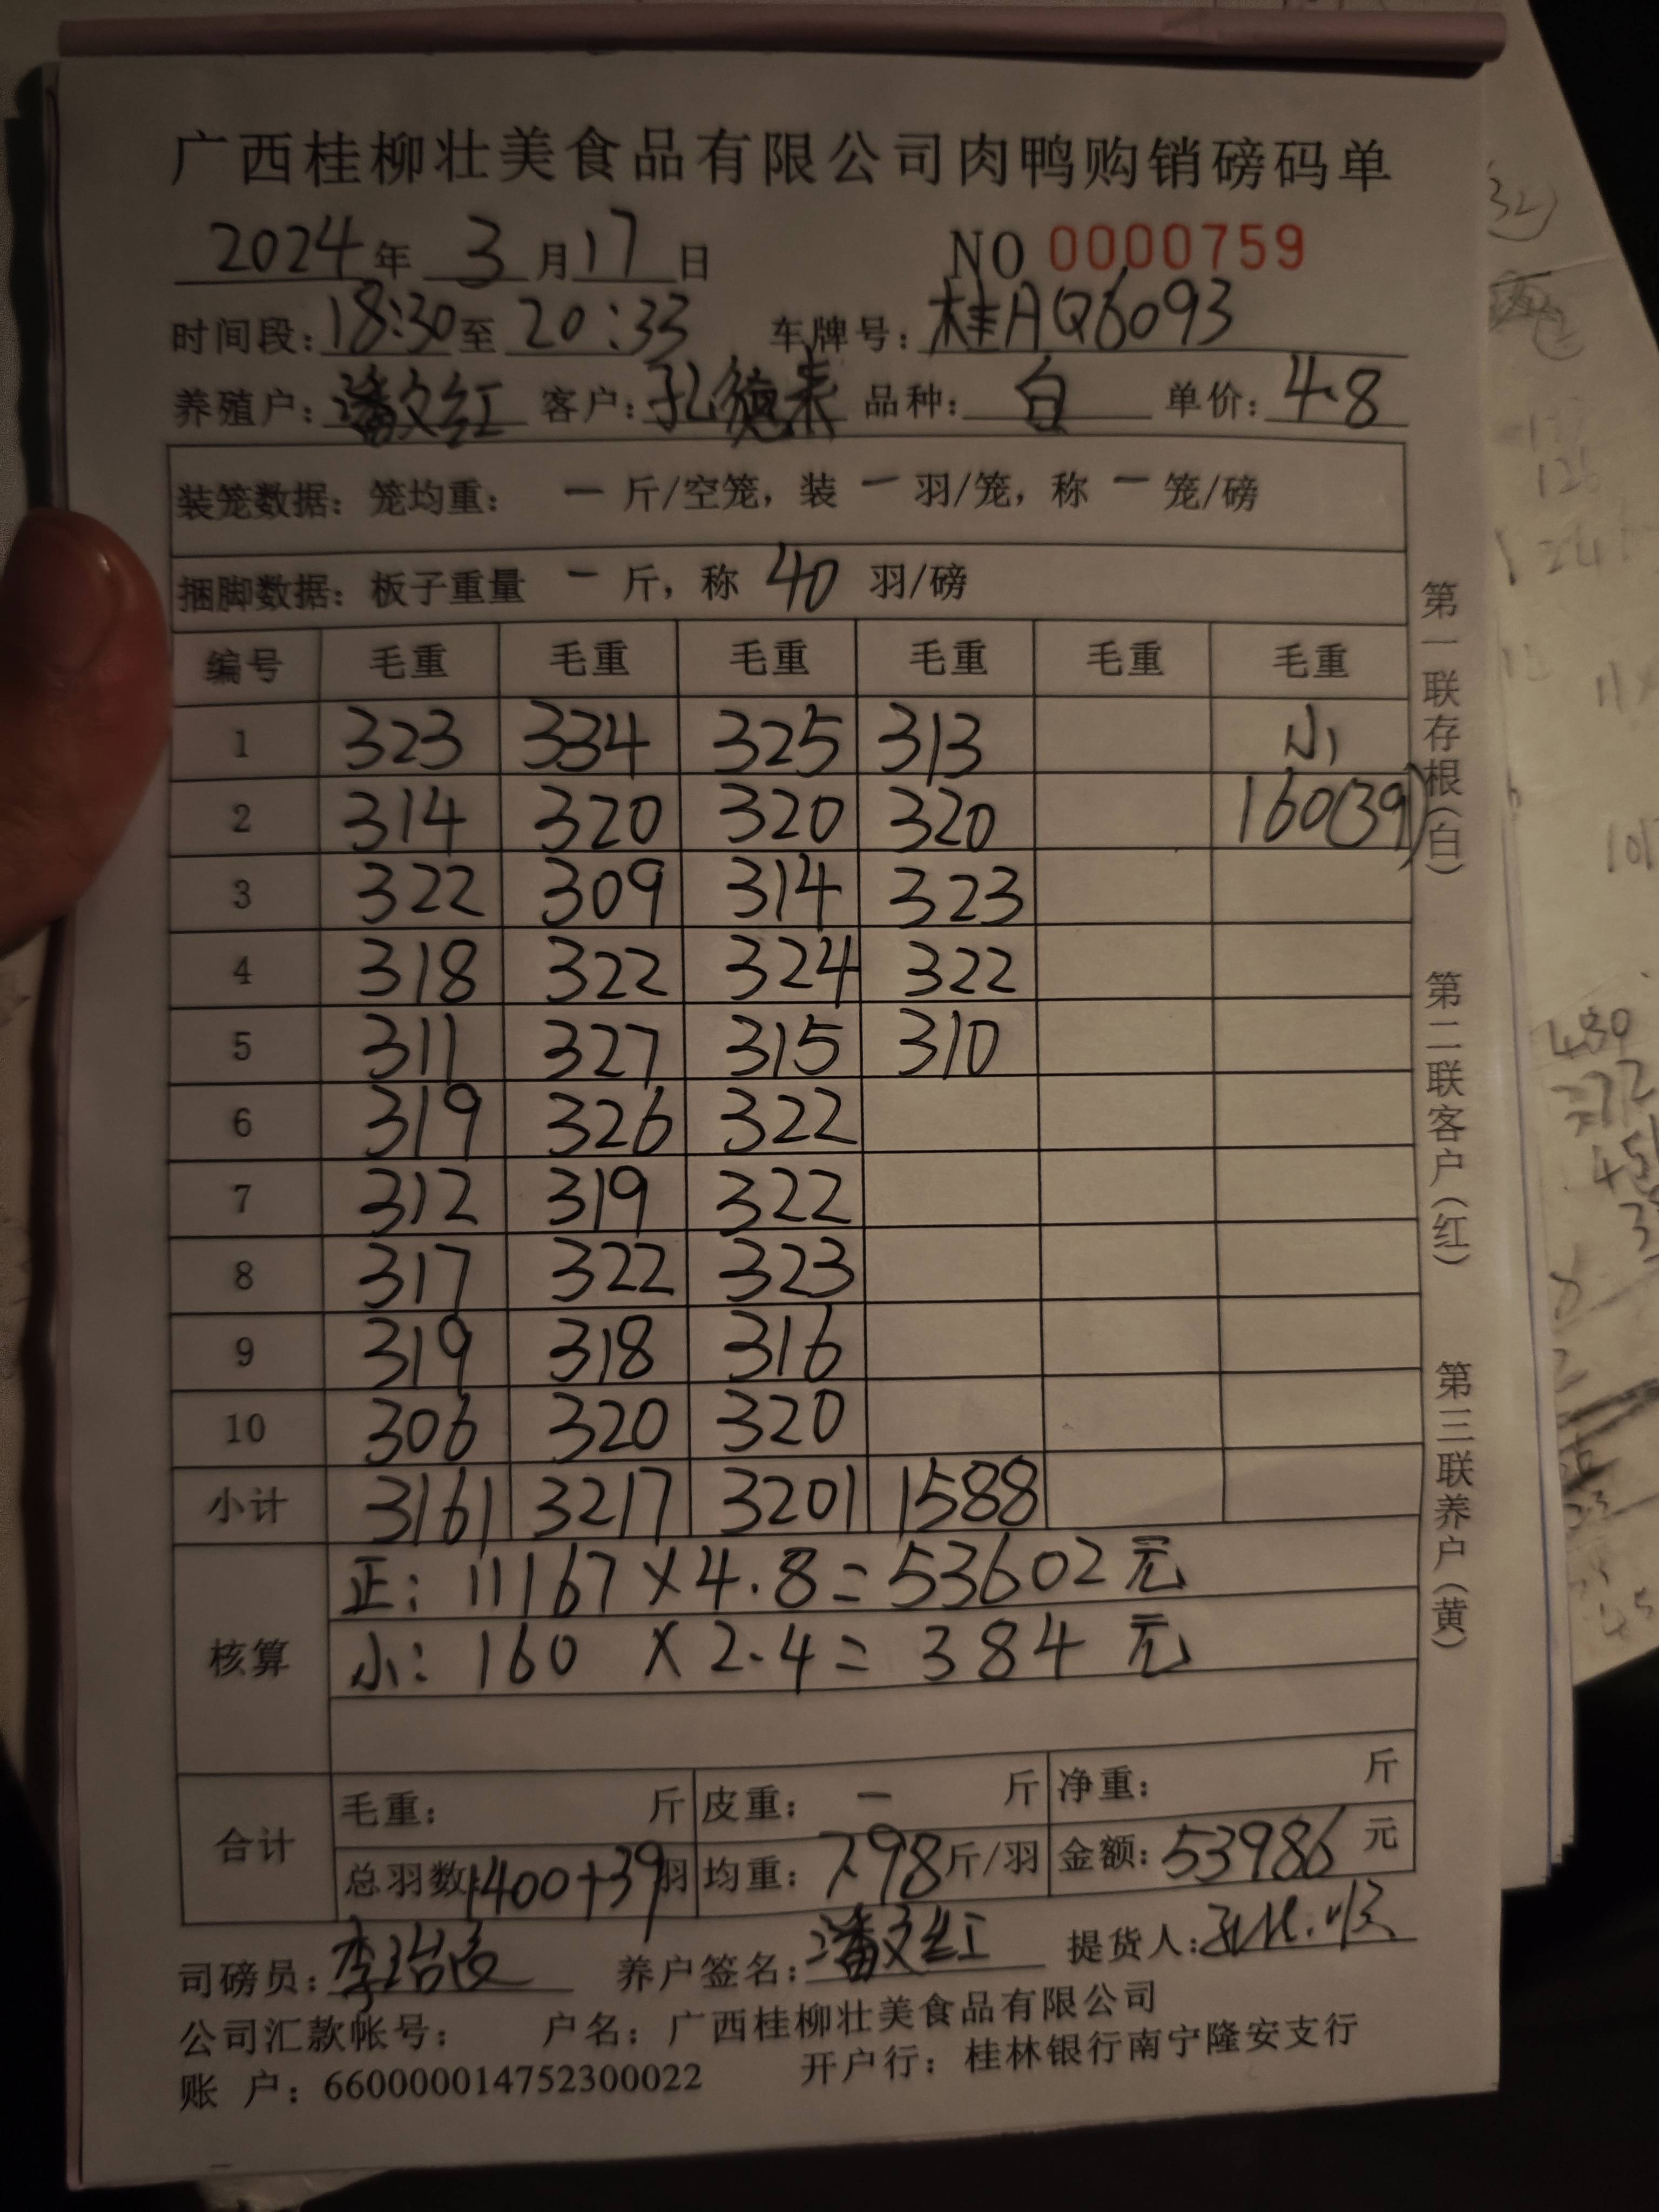 广西桂柳壮美食品有限公司肉鸭购销磅码单
2024年 3月17日 NO 0000759
时间段:18:30至 20:33 车牌号:桂AQ6093
养殖户:潘文红 客户:孔德 品种:白 单价:4.8
装笼数据:笼均重: 一 斤/空笼,装 一 羽/笼,称 一 笼/磅
捆脚数据:板子重量 一 斤,称 40 羽/磅
编号 毛重 毛重 毛重 毛重 毛重 毛重
1 323 334 325 313 小
2 314 320 320 320 160(39)
3 322 309 314 323
4 318 322 324 322
5 311 327 315 310
6 319 326 322
7 312 319 322
8 317 322 323
9 319 318 316
10 306 320 320
小计 3161 3217 3201 1588
核算
正: 11167×4.8=53602元
小: 160 ×2.4= 384 元
合计
毛重: 斤 皮重: 一 斤 净重: 斤
总羽数:1400+39羽 均重: 7.98斤/羽 金额:53986元
司磅员:李 养户签名:潘文红 提货人:
公司汇款帐号: 户名:广西桂柳壮美食品有限公司
账 户:660000014752300022 开户行:桂林银行南宁隆安支行
第一联存根(白)
第二联客户(红)
第三联养户(黄)